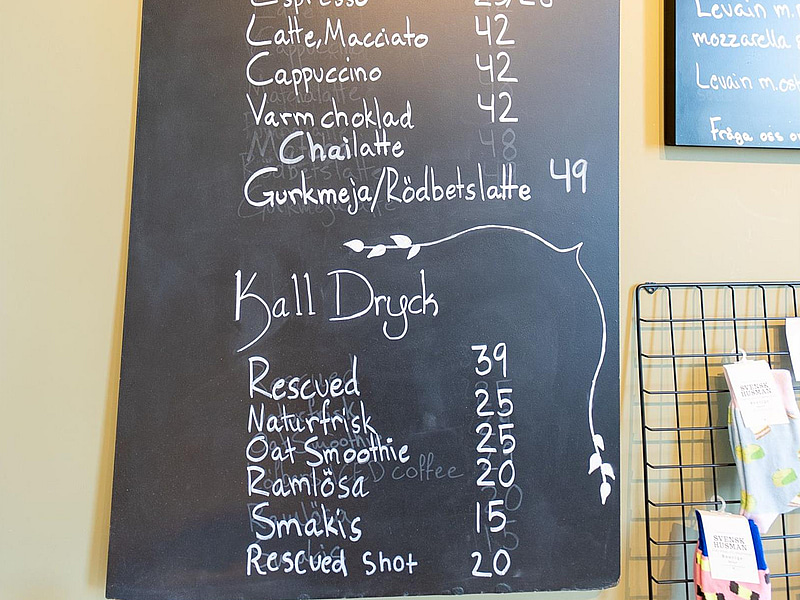 Espresso 25/28
Latte, Macciato 42
Cappuccino 42
Varm choklad 42
Chailatte
Gurkmeja/Rödbetslatte 49
Kall Dryck
Rescued 39
Naturfrisk 25
Oat Smoothie 25
Ramlösa 20
Smakis 15
Rescued shot 20
Levain m.
mozzarella
Levain m.ost
Fråga oss
SVENSK
HUSMAN
SVENSK
HUSMAN